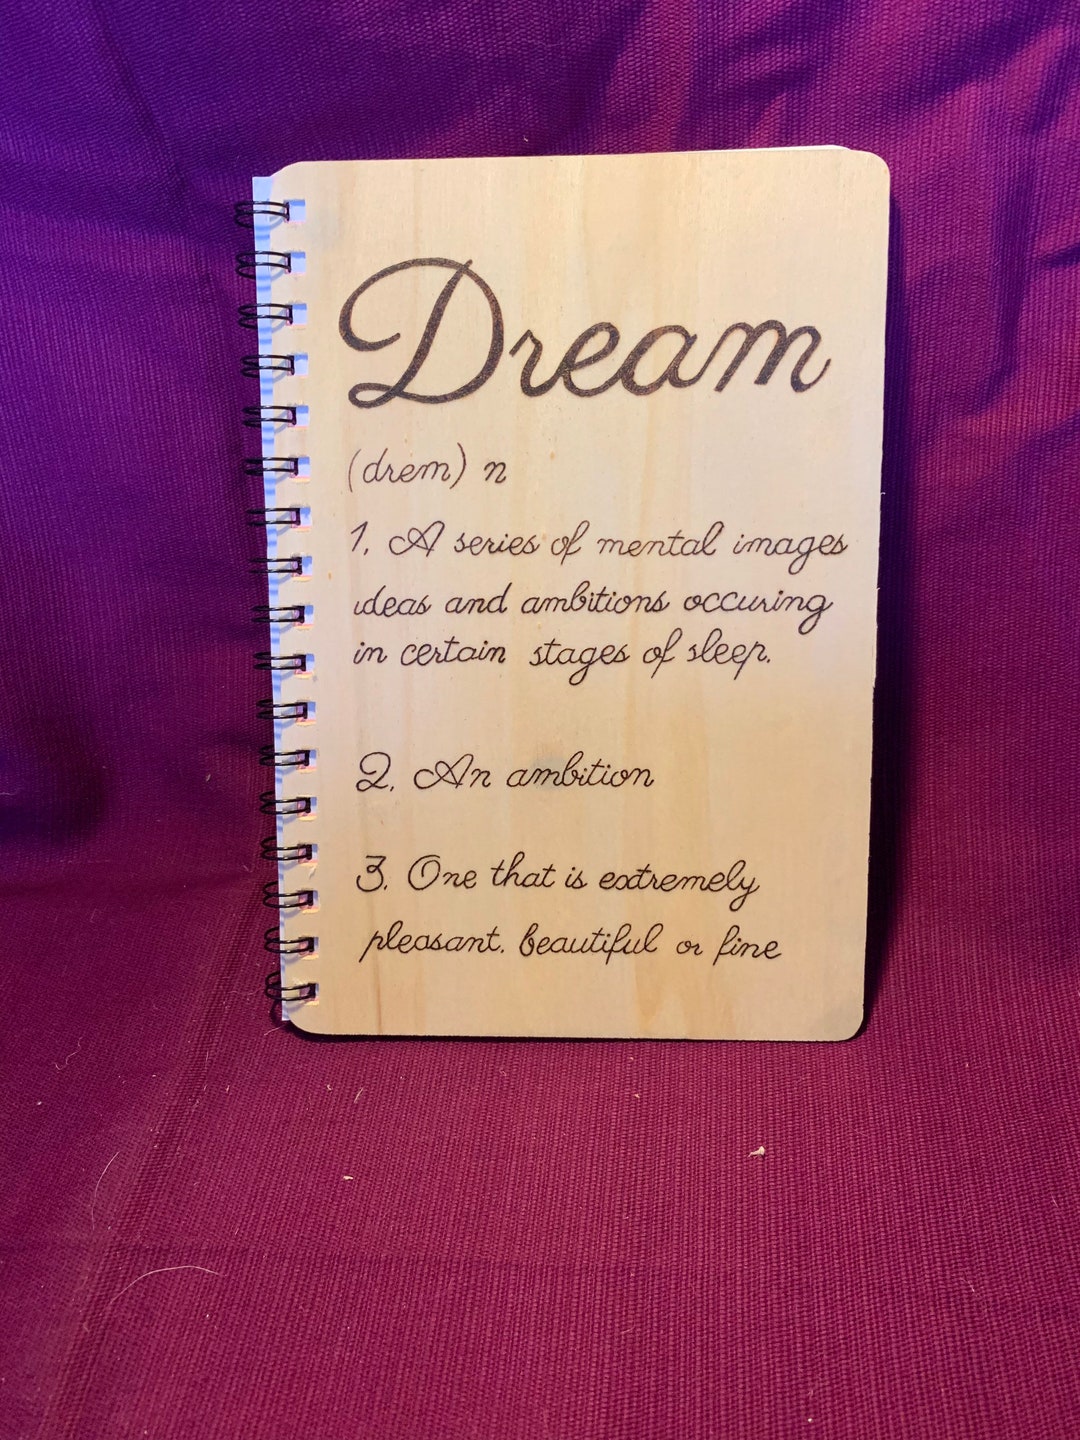 Dream
(drem) n
1. A series of mental images
ideas and ambitions occuring
in certain stages of sleep.
2. An ambition
3. One that is extremely
pleasant. beautiful or fine